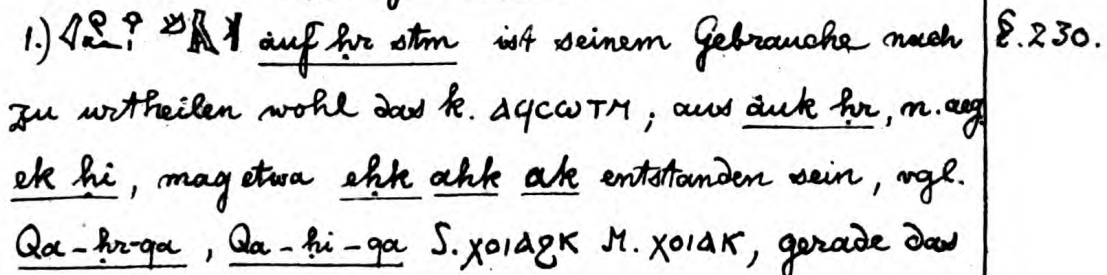 1.) áuf ḥr stm ist seinem Gebrauche nach §.230.
zu urtheilen wohl das k. ⲁϥⲥⲱⲧⲙ; aus áuk ḥr, n.aeg
ek ḥi, mag etwa eḥk aḥk ak entstanden sein, vgl.
Qa-ḥr-qa, Qa-ḥi-qa S. ⲭⲟⲓⲁϩⲕ M. ⲭⲟⲓⲁⲕ, gerade das